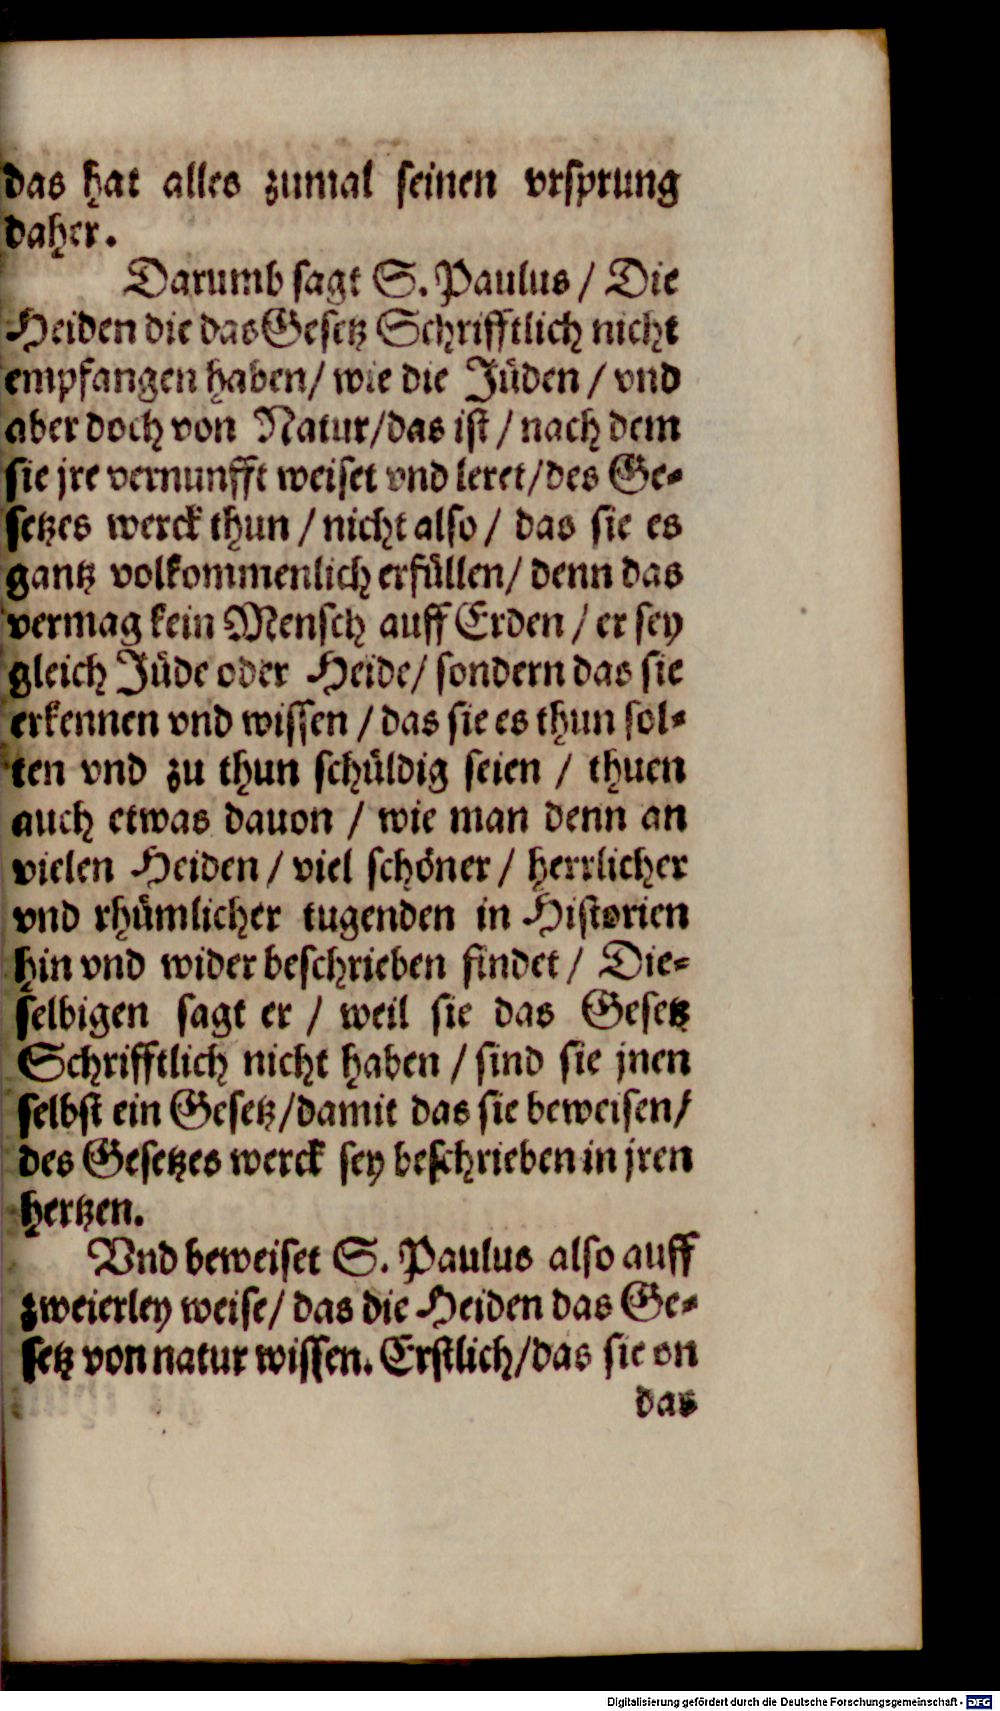 das hat alles zumal seinen vrsprung
daher.
Darumb sagt S. Paulus / Die
Heiden die das Gesetz Schrifftlich nicht
empfangen haben / wie die Jüden / vnd
aber doch von Natur / das ist / nach dem
sie jre vernunfft weiset vnd leret / des Ge-
setzes werck thun / nicht also / das sie es
gantz volkommenlich erfüllen / denn das
vermag kein Mensch auff Erden / er sey
gleich Jüde oder Heide / sondern das sie
erkennen vnd wissen / das sie es thun sol-
ten vnd zu thun schüldig seien / thuen
auch etwas dauon / wie man denn an
vielen Heiden / viel schöner / herrlicher
vnd rhümlicher tugenden in Historien
hin vnd wider beschrieben findet / Die-
selbigen sagt er / weil sie das Gesetz
Schrifftlich nicht haben / sind sie jnen
selbst ein Gesetz / damit das sie beweisen /
des Gesetzes werck sey beschrieben in jren
hertzen.
Vnd beweiset S. Paulus also auff
zweierley weise / das die Heiden das Ge-
setz von natur wissen. Erstlich / das sie on
das
Digitalisierung gefördert durch die Deutsche Forschungsgemeinschaft - DFG